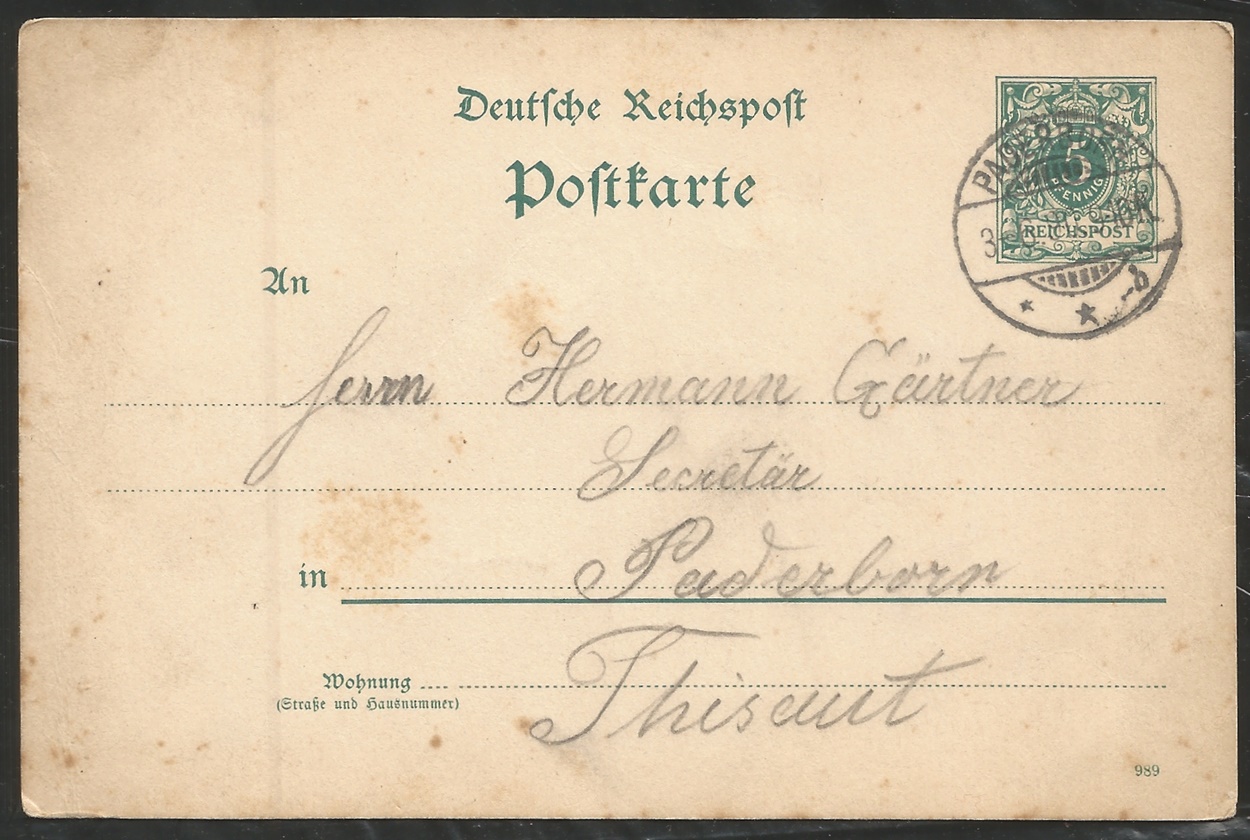 Deutsche Reichspost
Postkarte
5
PFENNIG
REICHSPOST
PADERBORN
An
Herrn Hermann Gärtner
Secretär
in Paderborn
Wohnung
(Straße und Hausnummer)
989